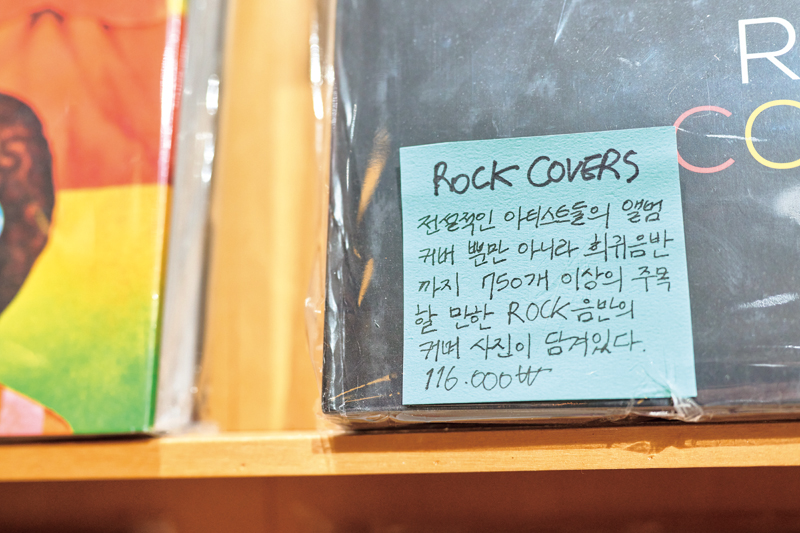 R
CO
ROCK COVERS
전설적인 아티스트들의 앨범
커버 뿐만 아니라 희귀음반
까지 750개 이상의 주목
할 만한 ROCK 음반의
커버 사진이 담겨있다.
116.000₩